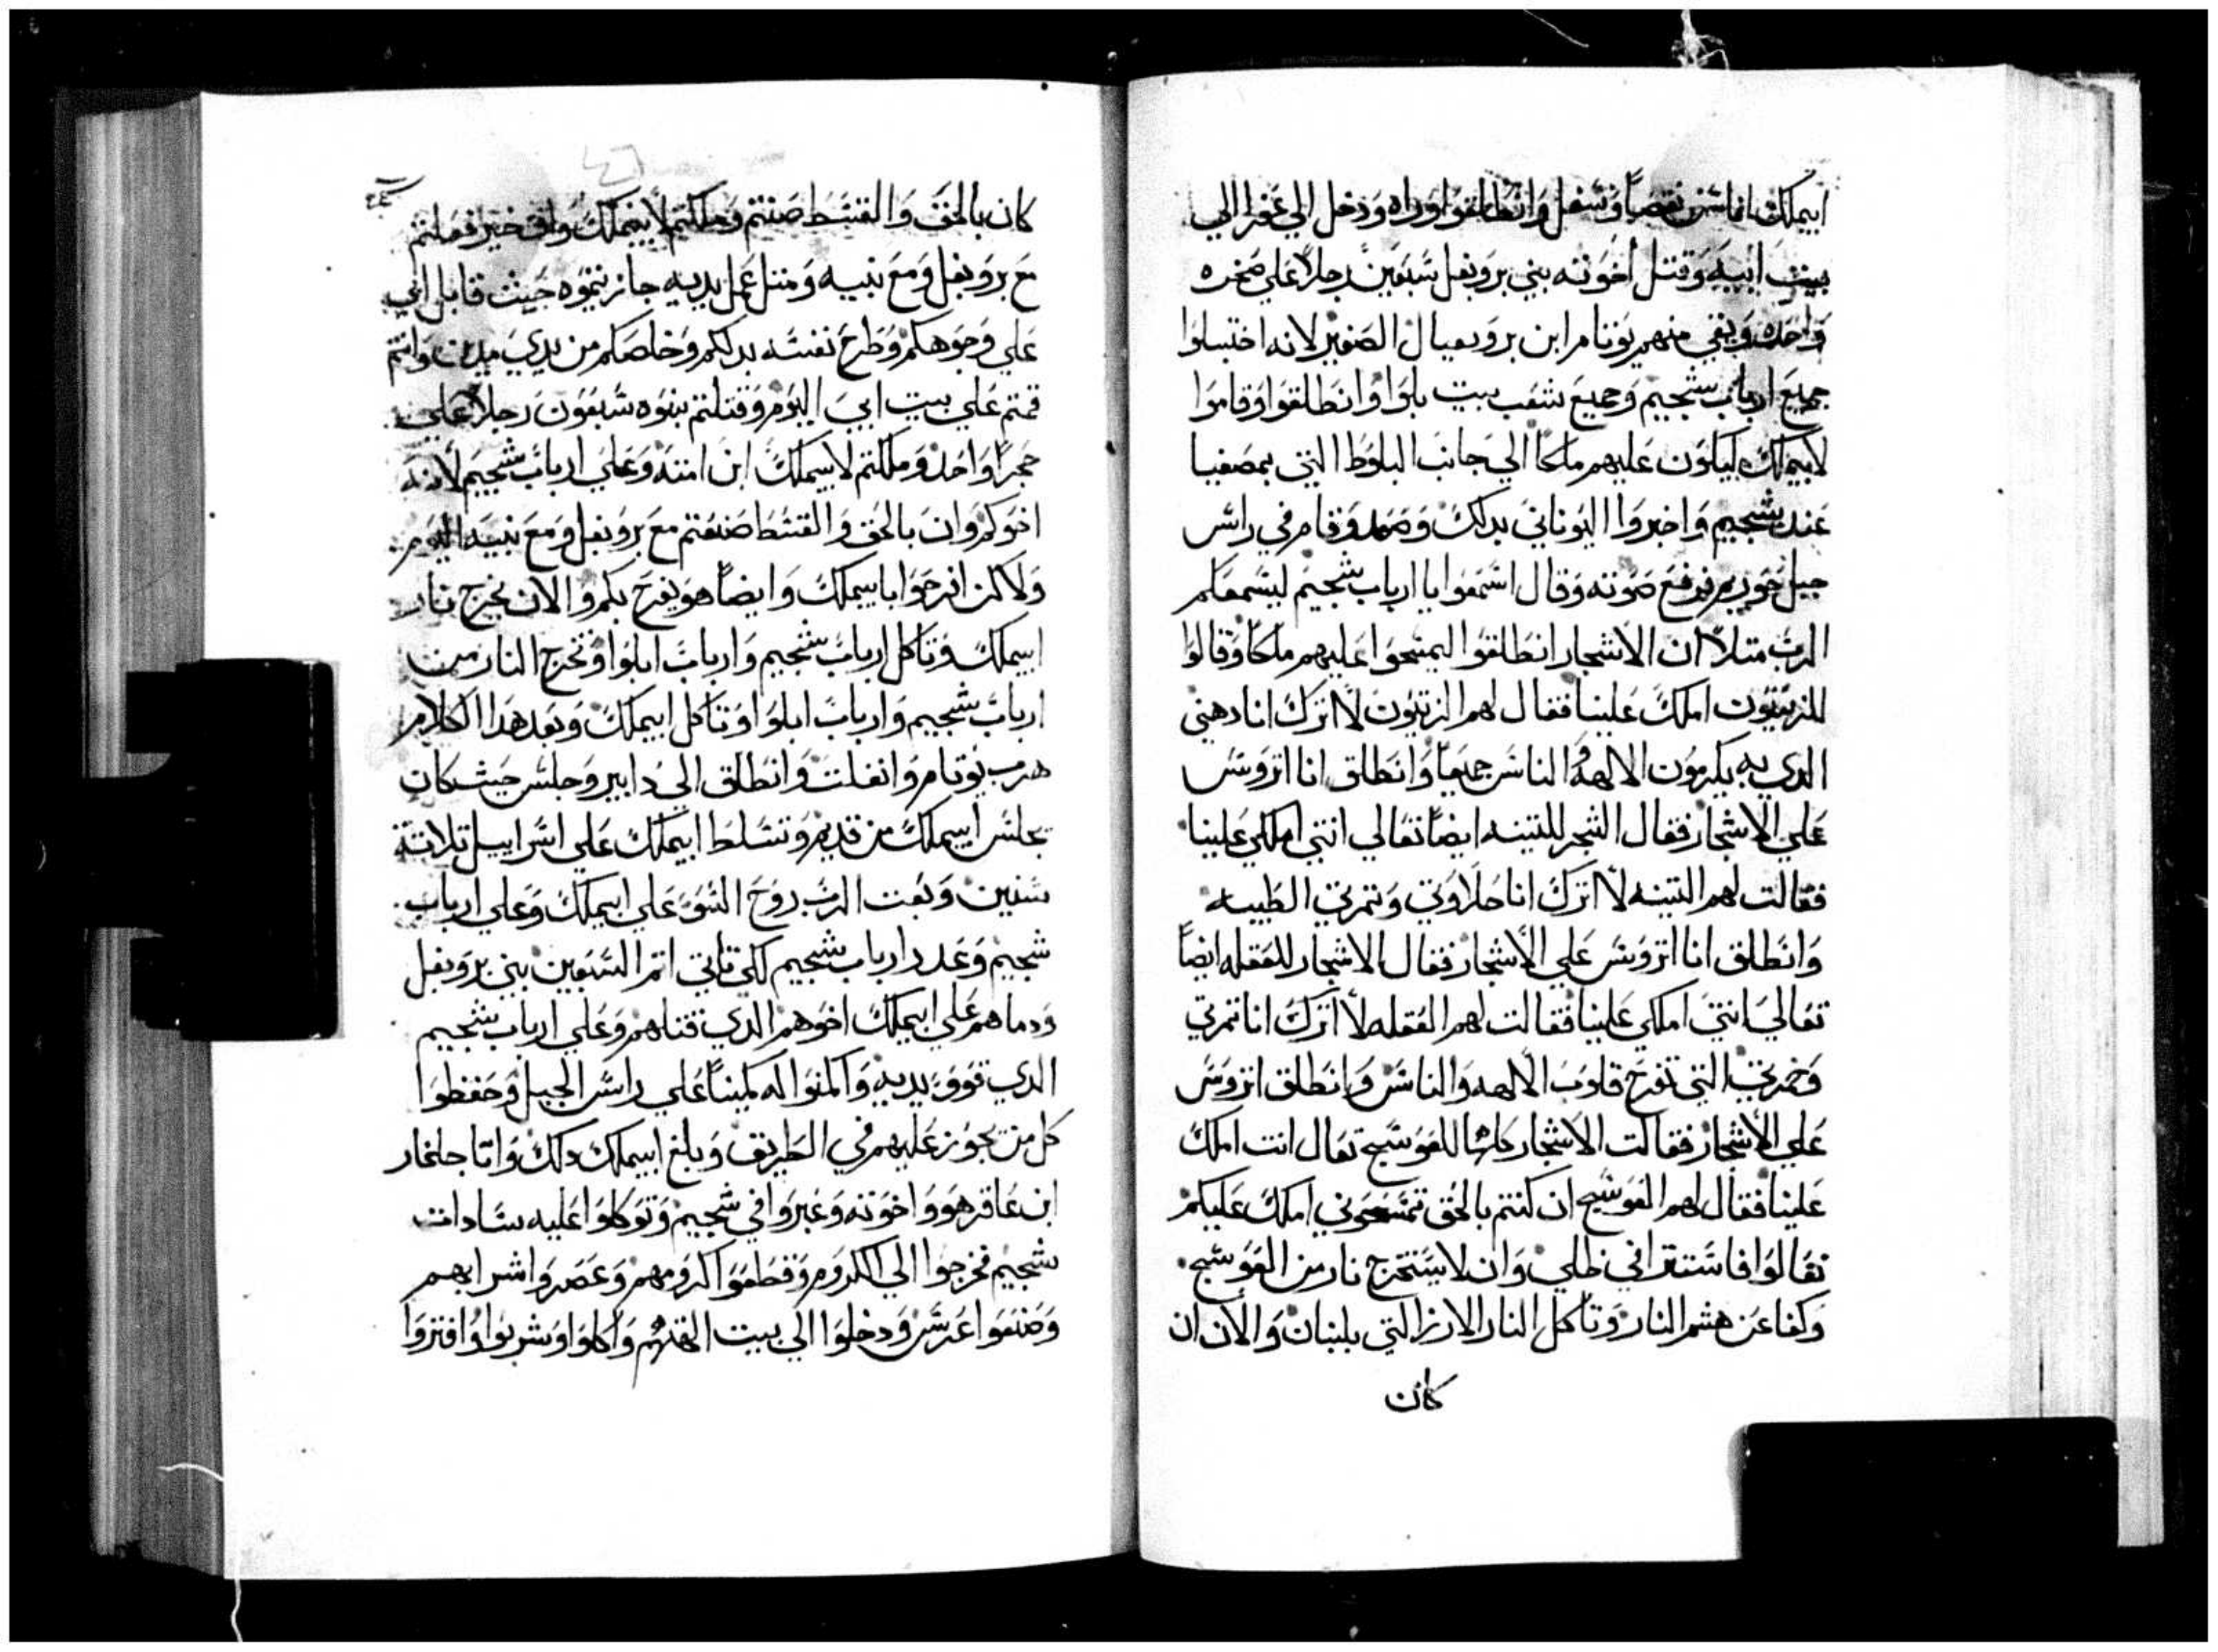 ابيملك اناس نقصاً وسفل وانطلقوا وراه ودخل الي عفرا الي
بيت ابيه وقتل اخوته بني بروبعل سبعين رجلاً علي صخره
واحده وبقي منهم يوتام ابن بروبعال الصغير لانه اختبا
جميع ارباب شجيم وجميع شعب بيت بلوا وانطلقوا وقاموا
لابيملك ليكون عليهم ملكاً الي جانب البلوط التي بمصفيا
عند شجيم واخبروا اليوناني بدلك وصعد وقام في راس
جبل حوريم فرفع صوته وقال اسمعوا يا ارباب شجيم ليسمعكم
الرب متلاً ان الاشجار انطلقوا ليمسحوا عليهم ملكاً وقالوا
للزيتون املك علينا فقال لهم الزيتون لا اترك انا دهني
الدي به يكرمون الالهه الناس جميعاً وانطلق انا اتروس
علي الاشجار فقال الشجر للتينه ايضاً تعالي انتي املكي علينا
فقالت لهم التينه لا اترك انا حلاوتي وتمرتي الطيبه
وانطلق انا اتروس علي الاشجار فقال الاشجار للعقله ايضاً
تعالي انتي املكي علينا فقالت لهم العقله لا اترك انا تمرتي
وخمرتي التي تفرح قلوب الالهه والناس وانطلق اتروس
علي الاشجار فقالت الاشجار كلها للعوسج تعال انت املك
علينا فقال لهم العوسج ان كنتم بالحق تمسحوني املك عليكم
تعالوا فاستترا في ظلي وان لا يستخرج نار من العوسج
وكفا عن هشم النار وتاكل النار الارز التي بلبنان والان ان
كان
كان بالحق والقسط صنعتم وملكتم لابيملك وان خير فعلتم
مع بروبعل ومع بنيه ومتل عمل يديه جازيتموه حيث قاتل ابي
علي وجوهكم وطرح نفسه بدلكم وخلصكم من يدي مدين وانتم
قمتم علي بيت ابي اليوم وقتلتم بنوه سبعون رجلاً علي
حجراً واحد وملكتم لابيملك ابن امته وعلي ارباب شجيم لانه
اخوكم وان بالحق والقسط صنعتم مع بروبعل ومع بنيه اليوم
ولاكن افرحوا بابيملك وايضاً هو يفرح بكم والان يخرج نار
ابيملك وتاكل ارباب شجيم وارباب ابلوا وتخرج النار من
ارباب شجيم وارباب ابلوا وتاكل ابيملك وبعد هدا الكلام
هرب يوتام وانفلت وانطلق الي دابير وجلس حيث كان
يجلس ابيملك من قديم وتسلط ابيملك علي اسراييل تلاتة
سنين وبعت الرب روح السو علي ابيملك وعلي ارباب
شجيم وغدر ارباب شجيم لكي تاتي اتم السبعين بني بروبعل
ودماهم علي ابيملك اخوهم الدي قتلهم وعلي ارباب شجيم
الدي قووا يديه واكمنوا له كميناً علي راس الجبل وحفظوا
كل من يجوز عليهم في الطريق وبلغ ابيملك دلك واتا جلغار
ابن عاقر هو واخوته وعبروا في شجيم وتوكلوا عليه سادات
شجيم فخرجوا الي الكروم وقطعوا كرومهم وعصروا شرابهم
وصنعوا عرس ودخلوا الي بيت الهتهم واكلوا وشربوا وافتروا